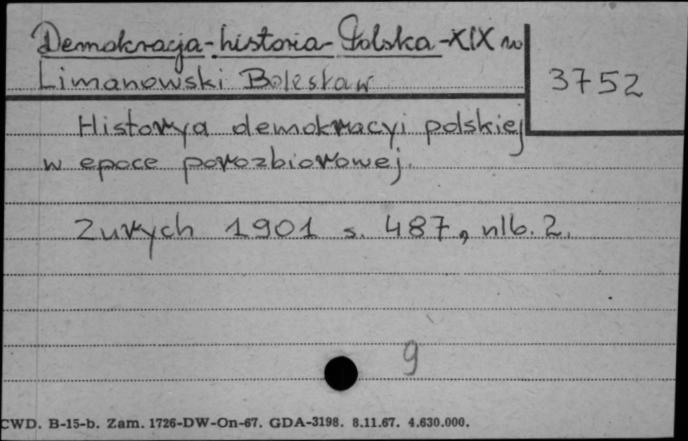 Demokracja-historia-Polska-XIX w
Limanowski Bolesław
3752
Historya demokracyi polskiej
w epoce porozbiorowej.
Zurych 1901 s. 487, nlb. 2.
9
CWD. B-15-b. Zam. 1726-DW-On-67. GDA-3198. 8.11.67. 4.630.000.